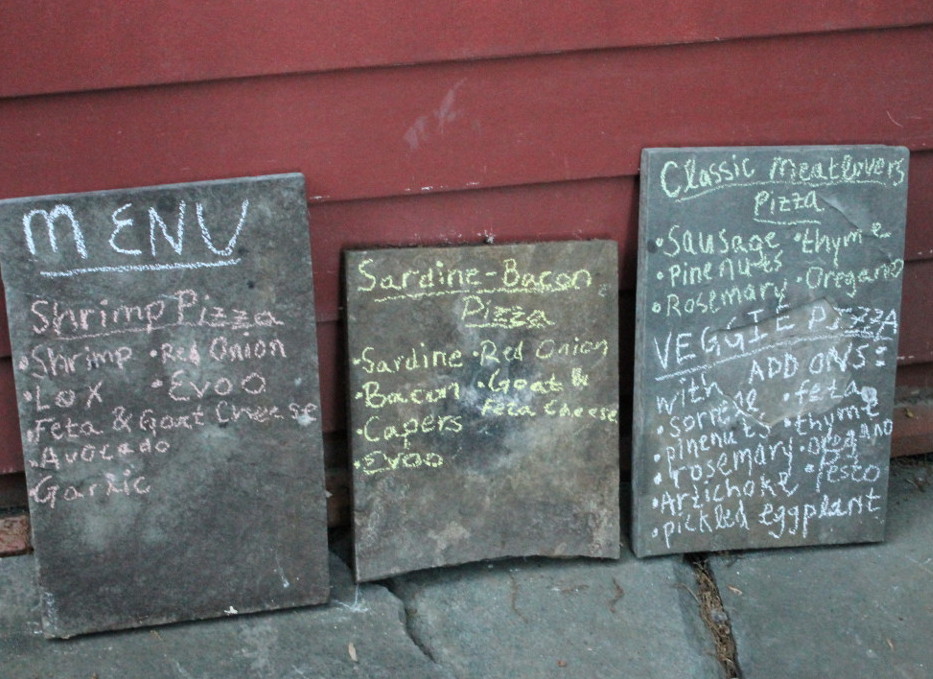 MENU
Shrimp Pizza
• Shrimp • Red Onion
• Lox • Evoo
• Feta & Goat Cheese
• Avocado
• Garlic
Sardine-Bacon
Pizza
• Sardine • Red Onion
• Bacon • Goat &
Feta Cheese
• Capers
• Evoo
Classic Meatlovers
Pizza
• Sausage • thyme
• Pinenuts • Oregano
• Rosemary
VEGGIE PIZZA
with ADD ONS:
• feta
• sorrel • thyme
• pinenuts • oregano
• rosemary • Pesto
• Artichoke
• pickled eggplant